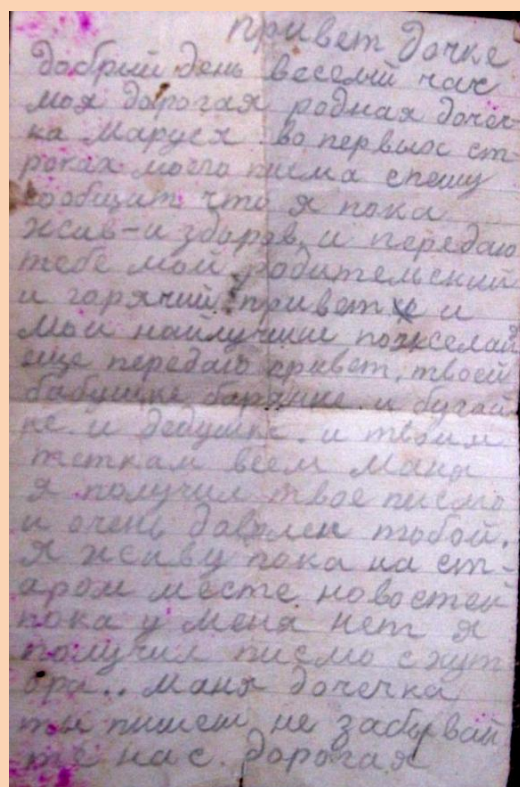 привет дочке
добрый день веселый час
моя дорогая родная дочеч-
ка Маруся во первых ст-
роках моего писма спешу
сообщит что я пока
жив-и здоров, и передаю
тебе мой родительский
и горячий привет и
мои найлучшии пожелай
еще передаю привет, твоей
бабушке и бугай
ке. и дедушке. и твоим
теткам всем Маня
я получил твое писмо
и очень доволен тобой.
Я живу пока на ст-
аром месте новостей
пока у меня нет я
получил писмо с хут-
ора.. Маня дочечка
ты пишеш не забывай
те нас. дорогая